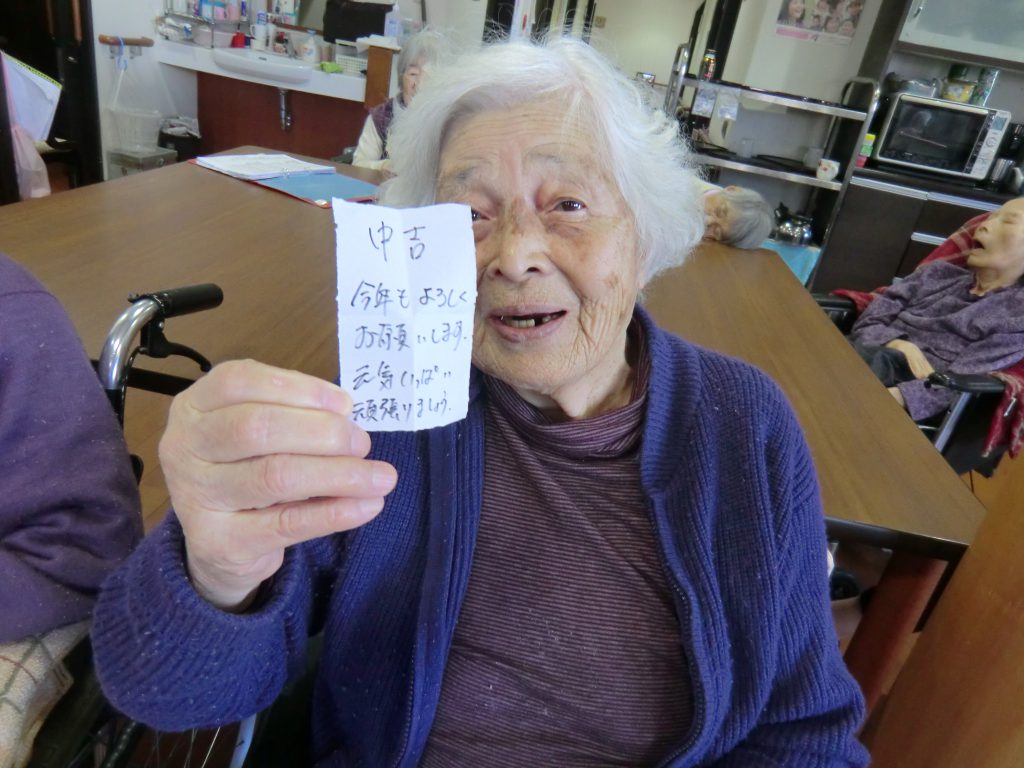 中吉
今年もよろしく
お願いします。
元気いっぱい
頑張りましょう。